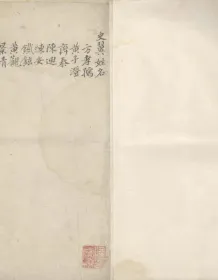 史翼姓名
方孝孺
黃子澄
齊泰
陳迪
練安
鐵鉉
黃觀
景清